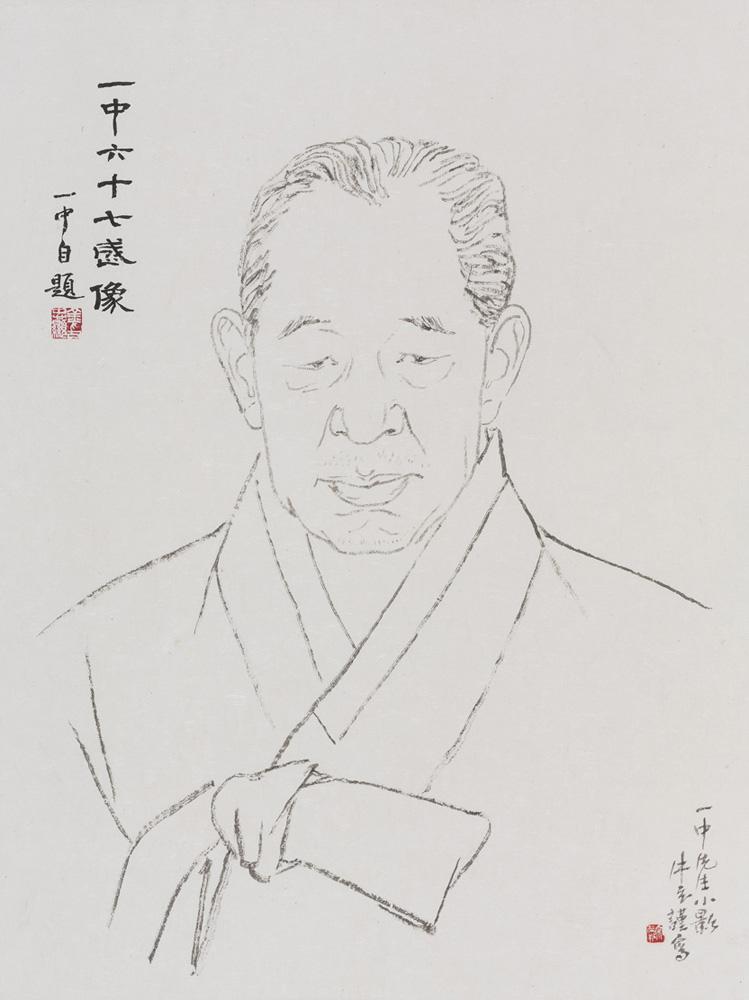 一中六十七歲像
一中自題
一中先生小影
牛玄謹寫